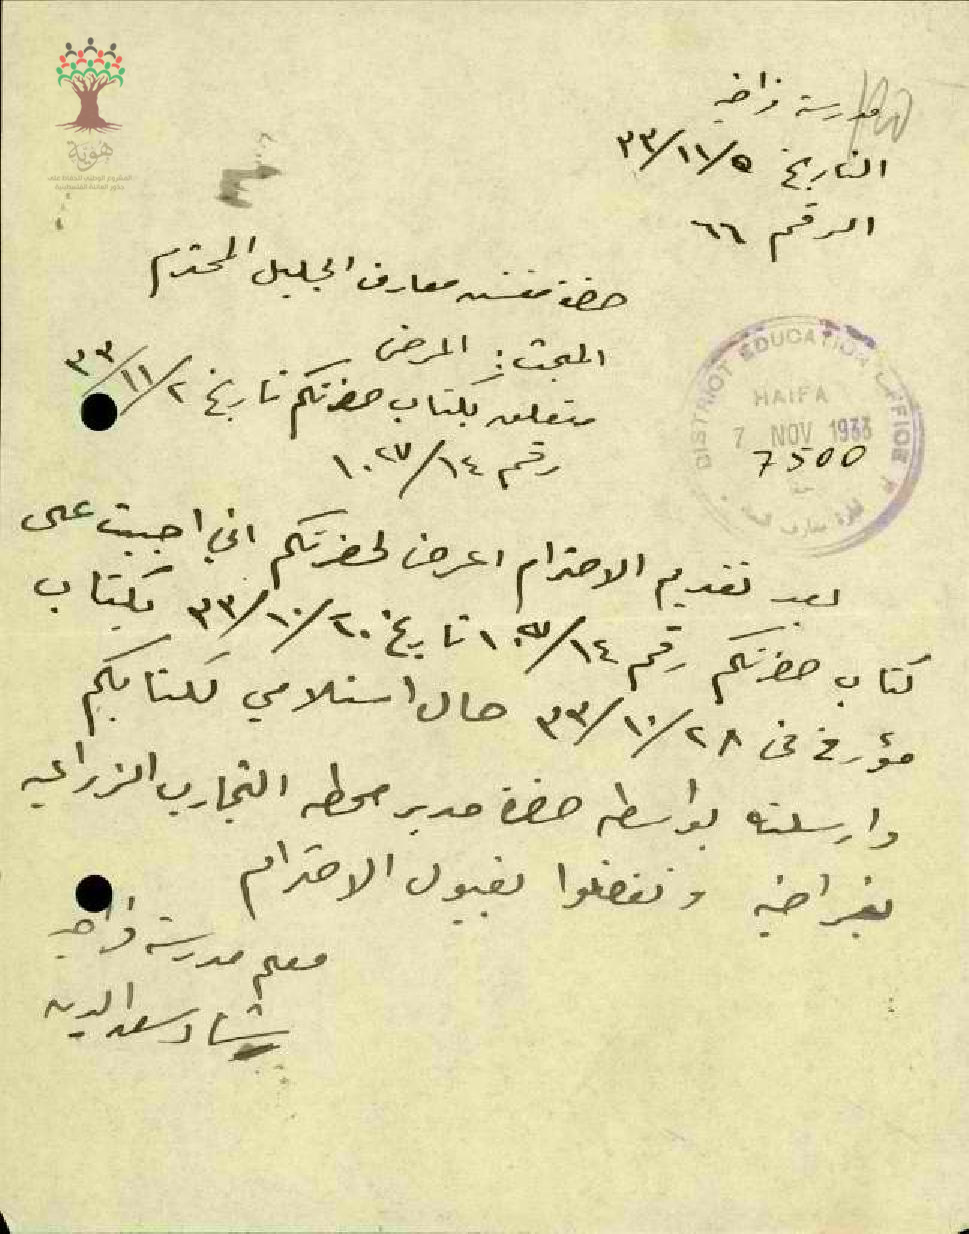 مدرسة فراضيه
التاريخ ٥/١١/٣٣
الرقم ٦٦
حضرة مفتش معارف الجليل المحترم
المبحث: المرض
متعلق بكتاب حضرتكم تاريخ ٢/١١/٣٣
رقم ١٤/١٠٢٧
بعد تقديم الاحترام اعرض لحضرتكم اني اجبت على
كتاب حضرتكم رقم ١٤/١٠٢٧ تاريخ ٢٠/١٠/٣٣ بكتاب
مؤرخ في ٢٨/١٠/٣٣ حال استلامي لكتابكم
وارسلته بواسطه حضرة مدير محطه التجارب الزراعيه
بفراضيه وتفضلوا بقبول الاحترام
معلم مدرسة فراضيه
سعد الدين
DISTRICT EDUCATION OFFICE
HAIFA
7 NOV 1933
7500
هوية
المشروع الوطني للحفاظ على
جذور العائلة الفلسطينية